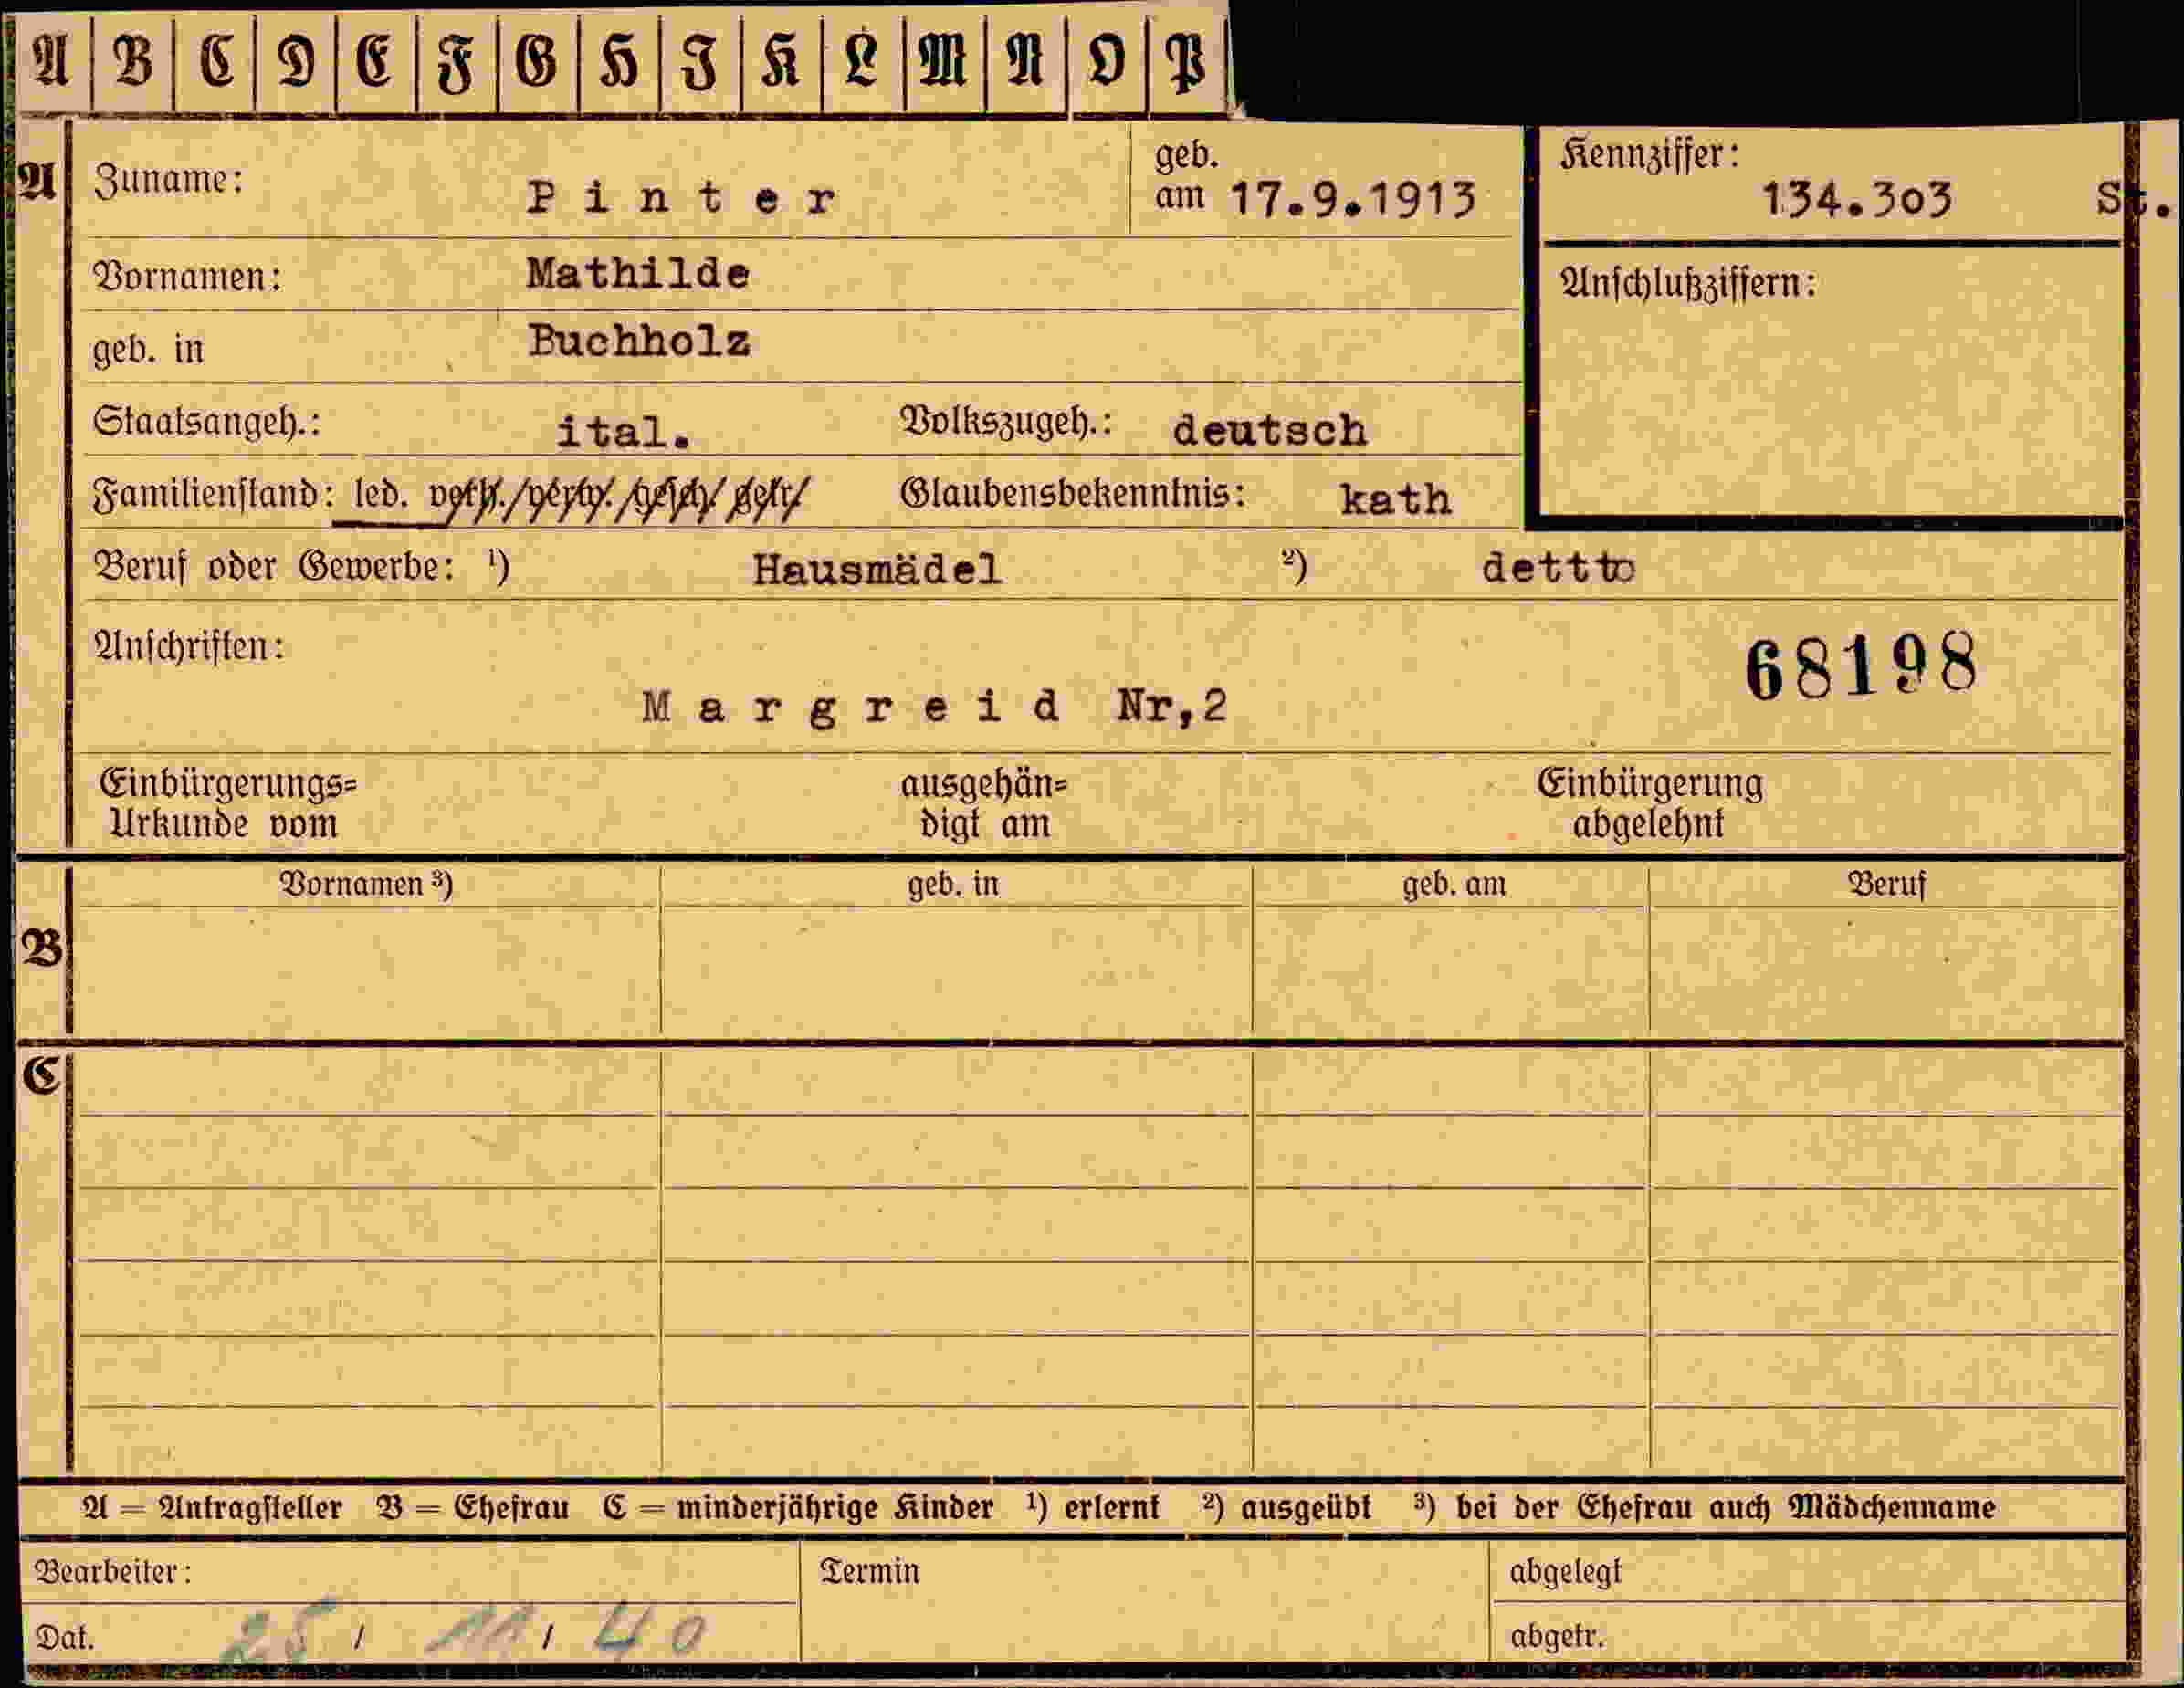 A B C D E F G H I K L M N O P
A Zuname: Pinter geb. am 17.9.1913 Kennziffer: 134.303 St.
Vornamen: Mathilde Anschlußziffern:
geb. in Buchholz
Staatsangeh.: ital. Volkszugeh.: deutsch
Familienstand: led. verh./verw./gesch/getr/ Glaubensbekenntnis: kath
Beruf oder Gewerbe: ¹) Hausmädel ²) dettto
Anschriften: 68198
Margreid Nr,2
Einbürgerungs= ausgehän= Einbürgerung
Urkunde vom digt am abgelehnt
Vornamen ³) geb. in geb. am Beruf
B
C
A = Antragsteller B = Ehefrau C = minderjährige Kinder ¹) erlernt ²) ausgeübt ³) bei der Ehefrau auch Mädchenname
Bearbeiter: Termin abgelegt
Dat. 25 / 11 / 40 abgetr.